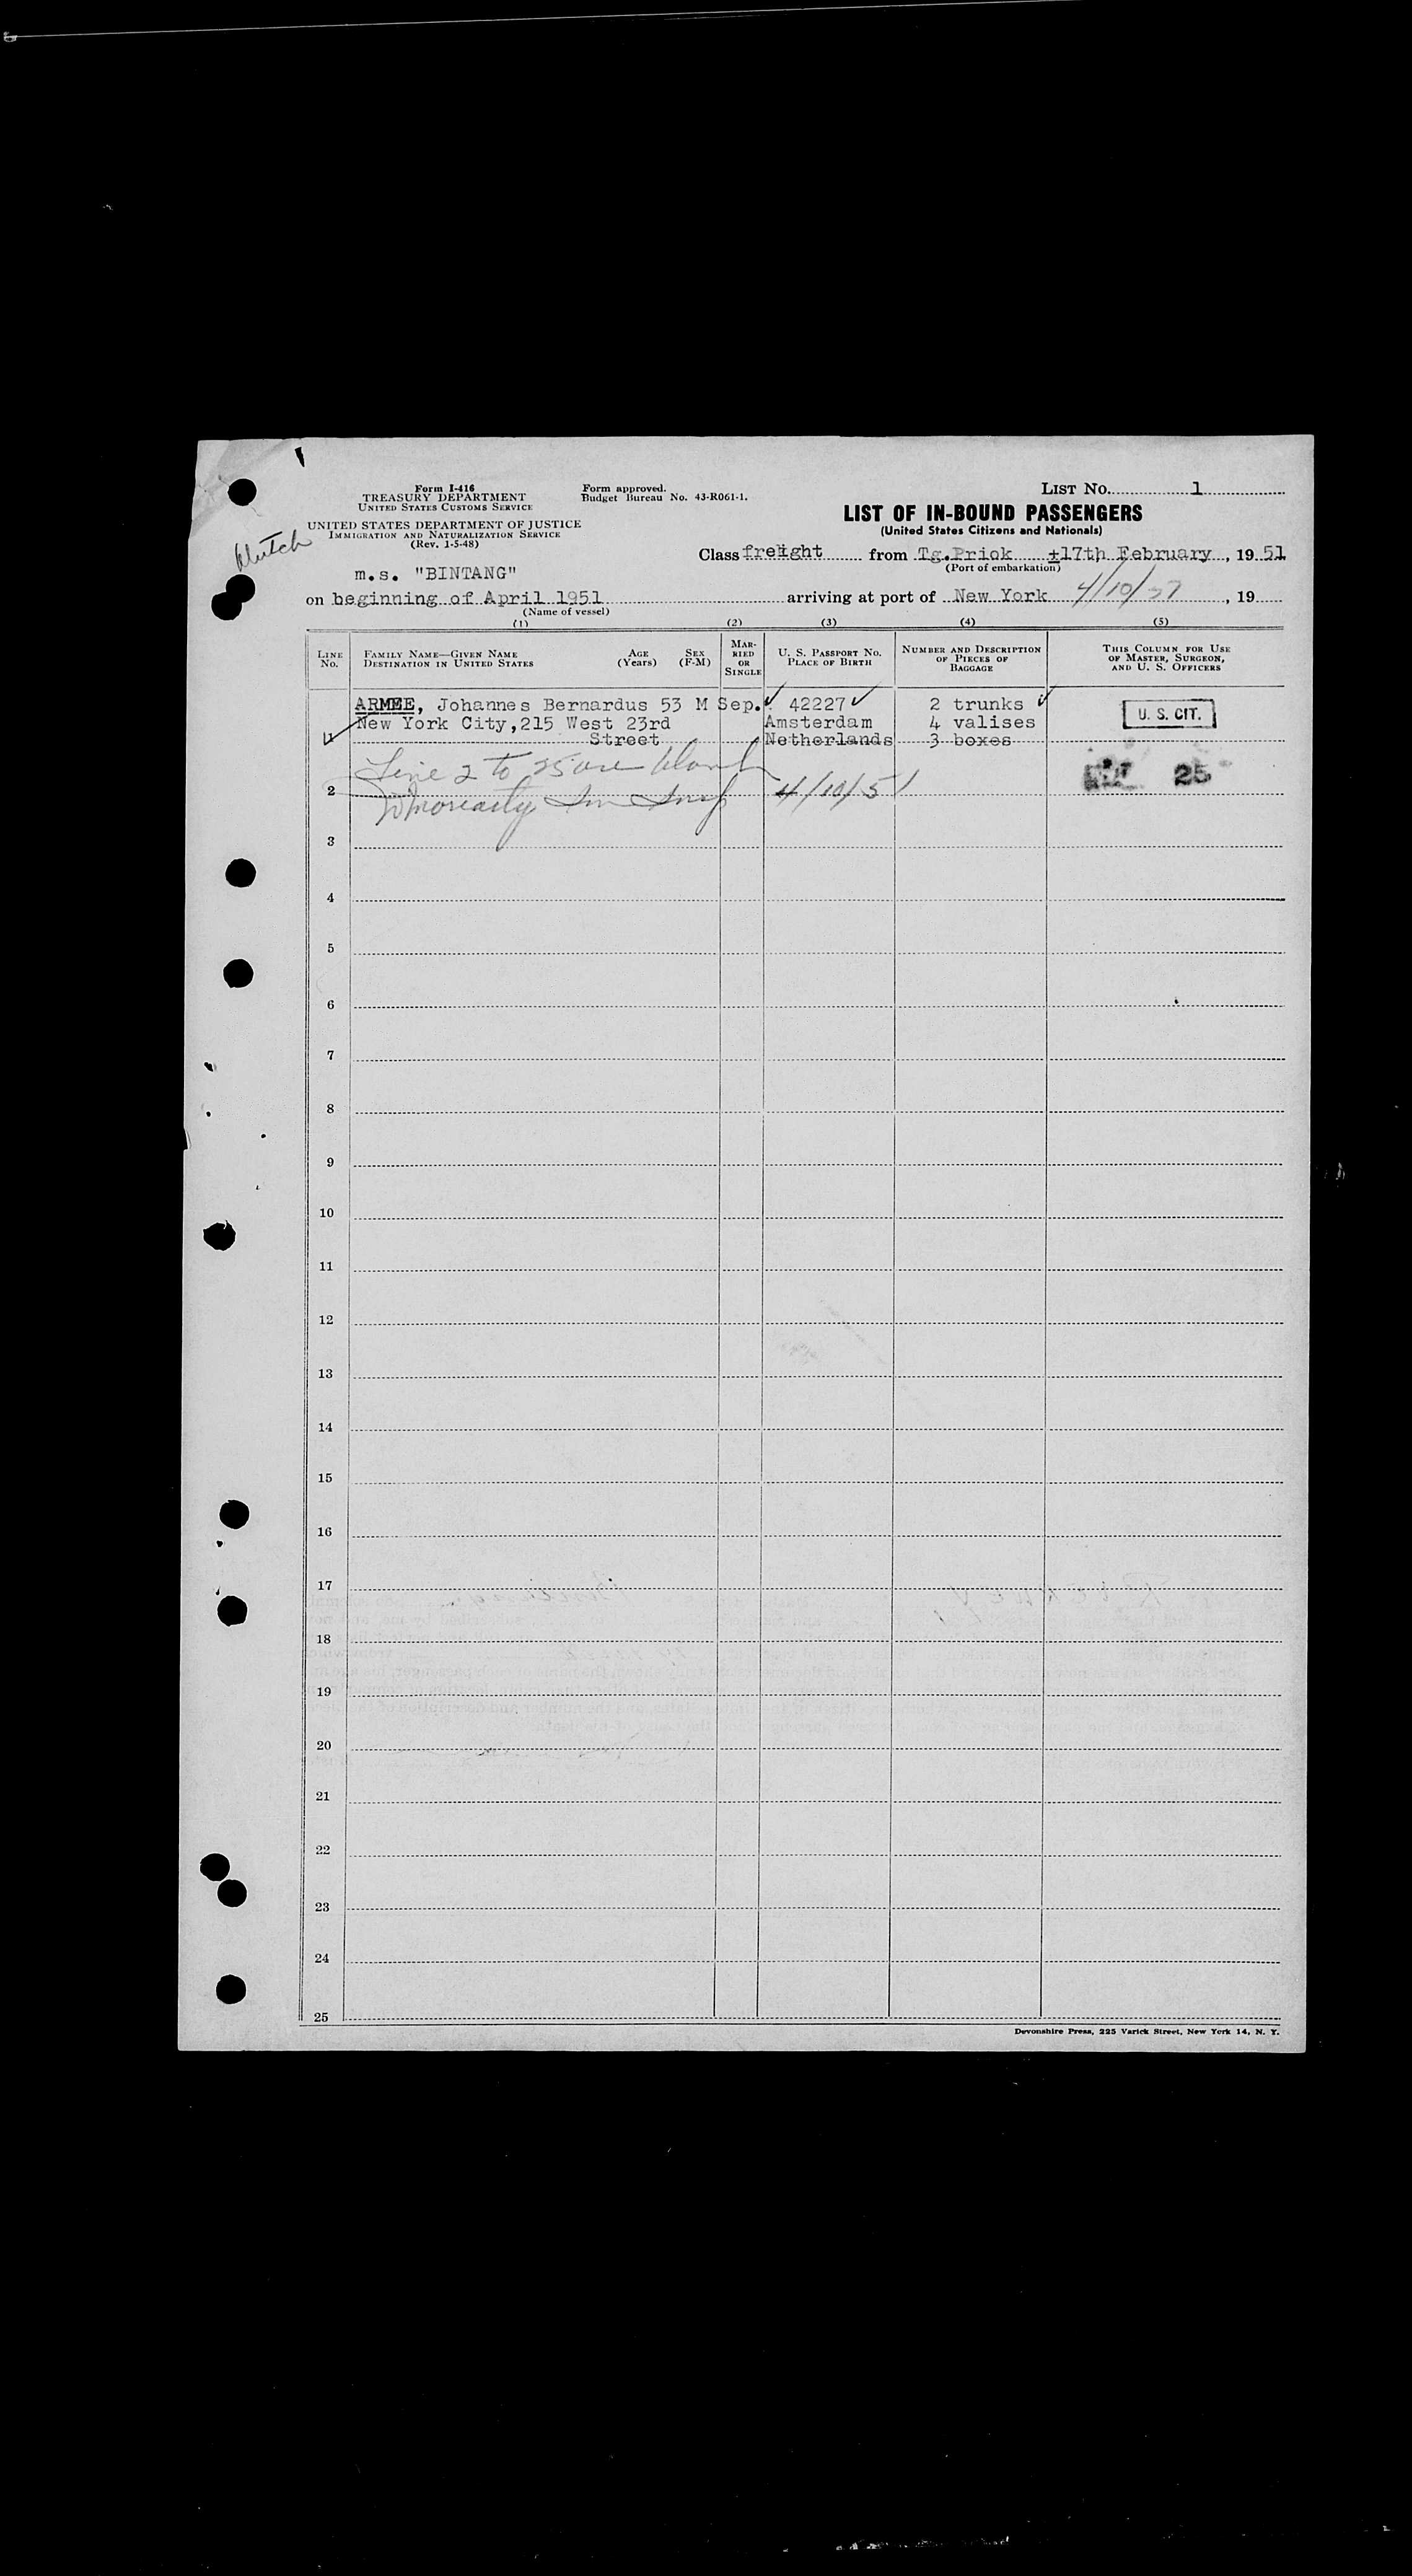 Form I-416
TREASURY DEPARTMENT
UNITED STATES CUSTOMS SERVICE
UNITED STATES DEPARTMENT OF JUSTICE
IMMIGRATION AND NATURALIZATION SERVICE
(Rev. 1-5-48)
Form approved.
Budget Bureau No. 43-R061-1.
LIST No. 1
LIST OF IN-BOUND PASSENGERS
(United States Citizens and Nationals)
Dutch
Class freight from Tg.Priok ±17th February, 19 51
(Port of embarkation)
m.s. "BINTANG"
on beginning of April 1951 arriving at port of New York 4/10/51, 19
(Name of vessel)
(1) (2) (3) (4) (5)
LINE No. FAMILY NAME—GIVEN NAME DESTINATION IN UNITED STATES AGE (Years) SEX (F-M) MARRIED OR SINGLE U. S. PASSPORT NO. PLACE OF BIRTH NUMBER AND DESCRIPTION OF PIECES OF BAGGAGE THIS COLUMN FOR USE OF MASTER, SURGEON, AND U. S. OFFICERS
ARMEE, Johannes Bernardus 53 M Sep. 42227 2 trunks
New York City,215 West 23rd Amsterdam 4 valises U. S. CIT.
1 Street Netherlands 3 boxes
Line 2 to 25 are blank
25
2 Moriarty Im Insp 4/10/51
3
4
5
6
7
8
9
10
11
12
13
14
15
16
17
18
19
20
21
22
23
24
25
Devonshire Press, 225 Varick Street, New York 14, N. Y.